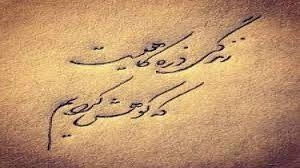 زندگی ذره کاهیست
که کوهش کردیم